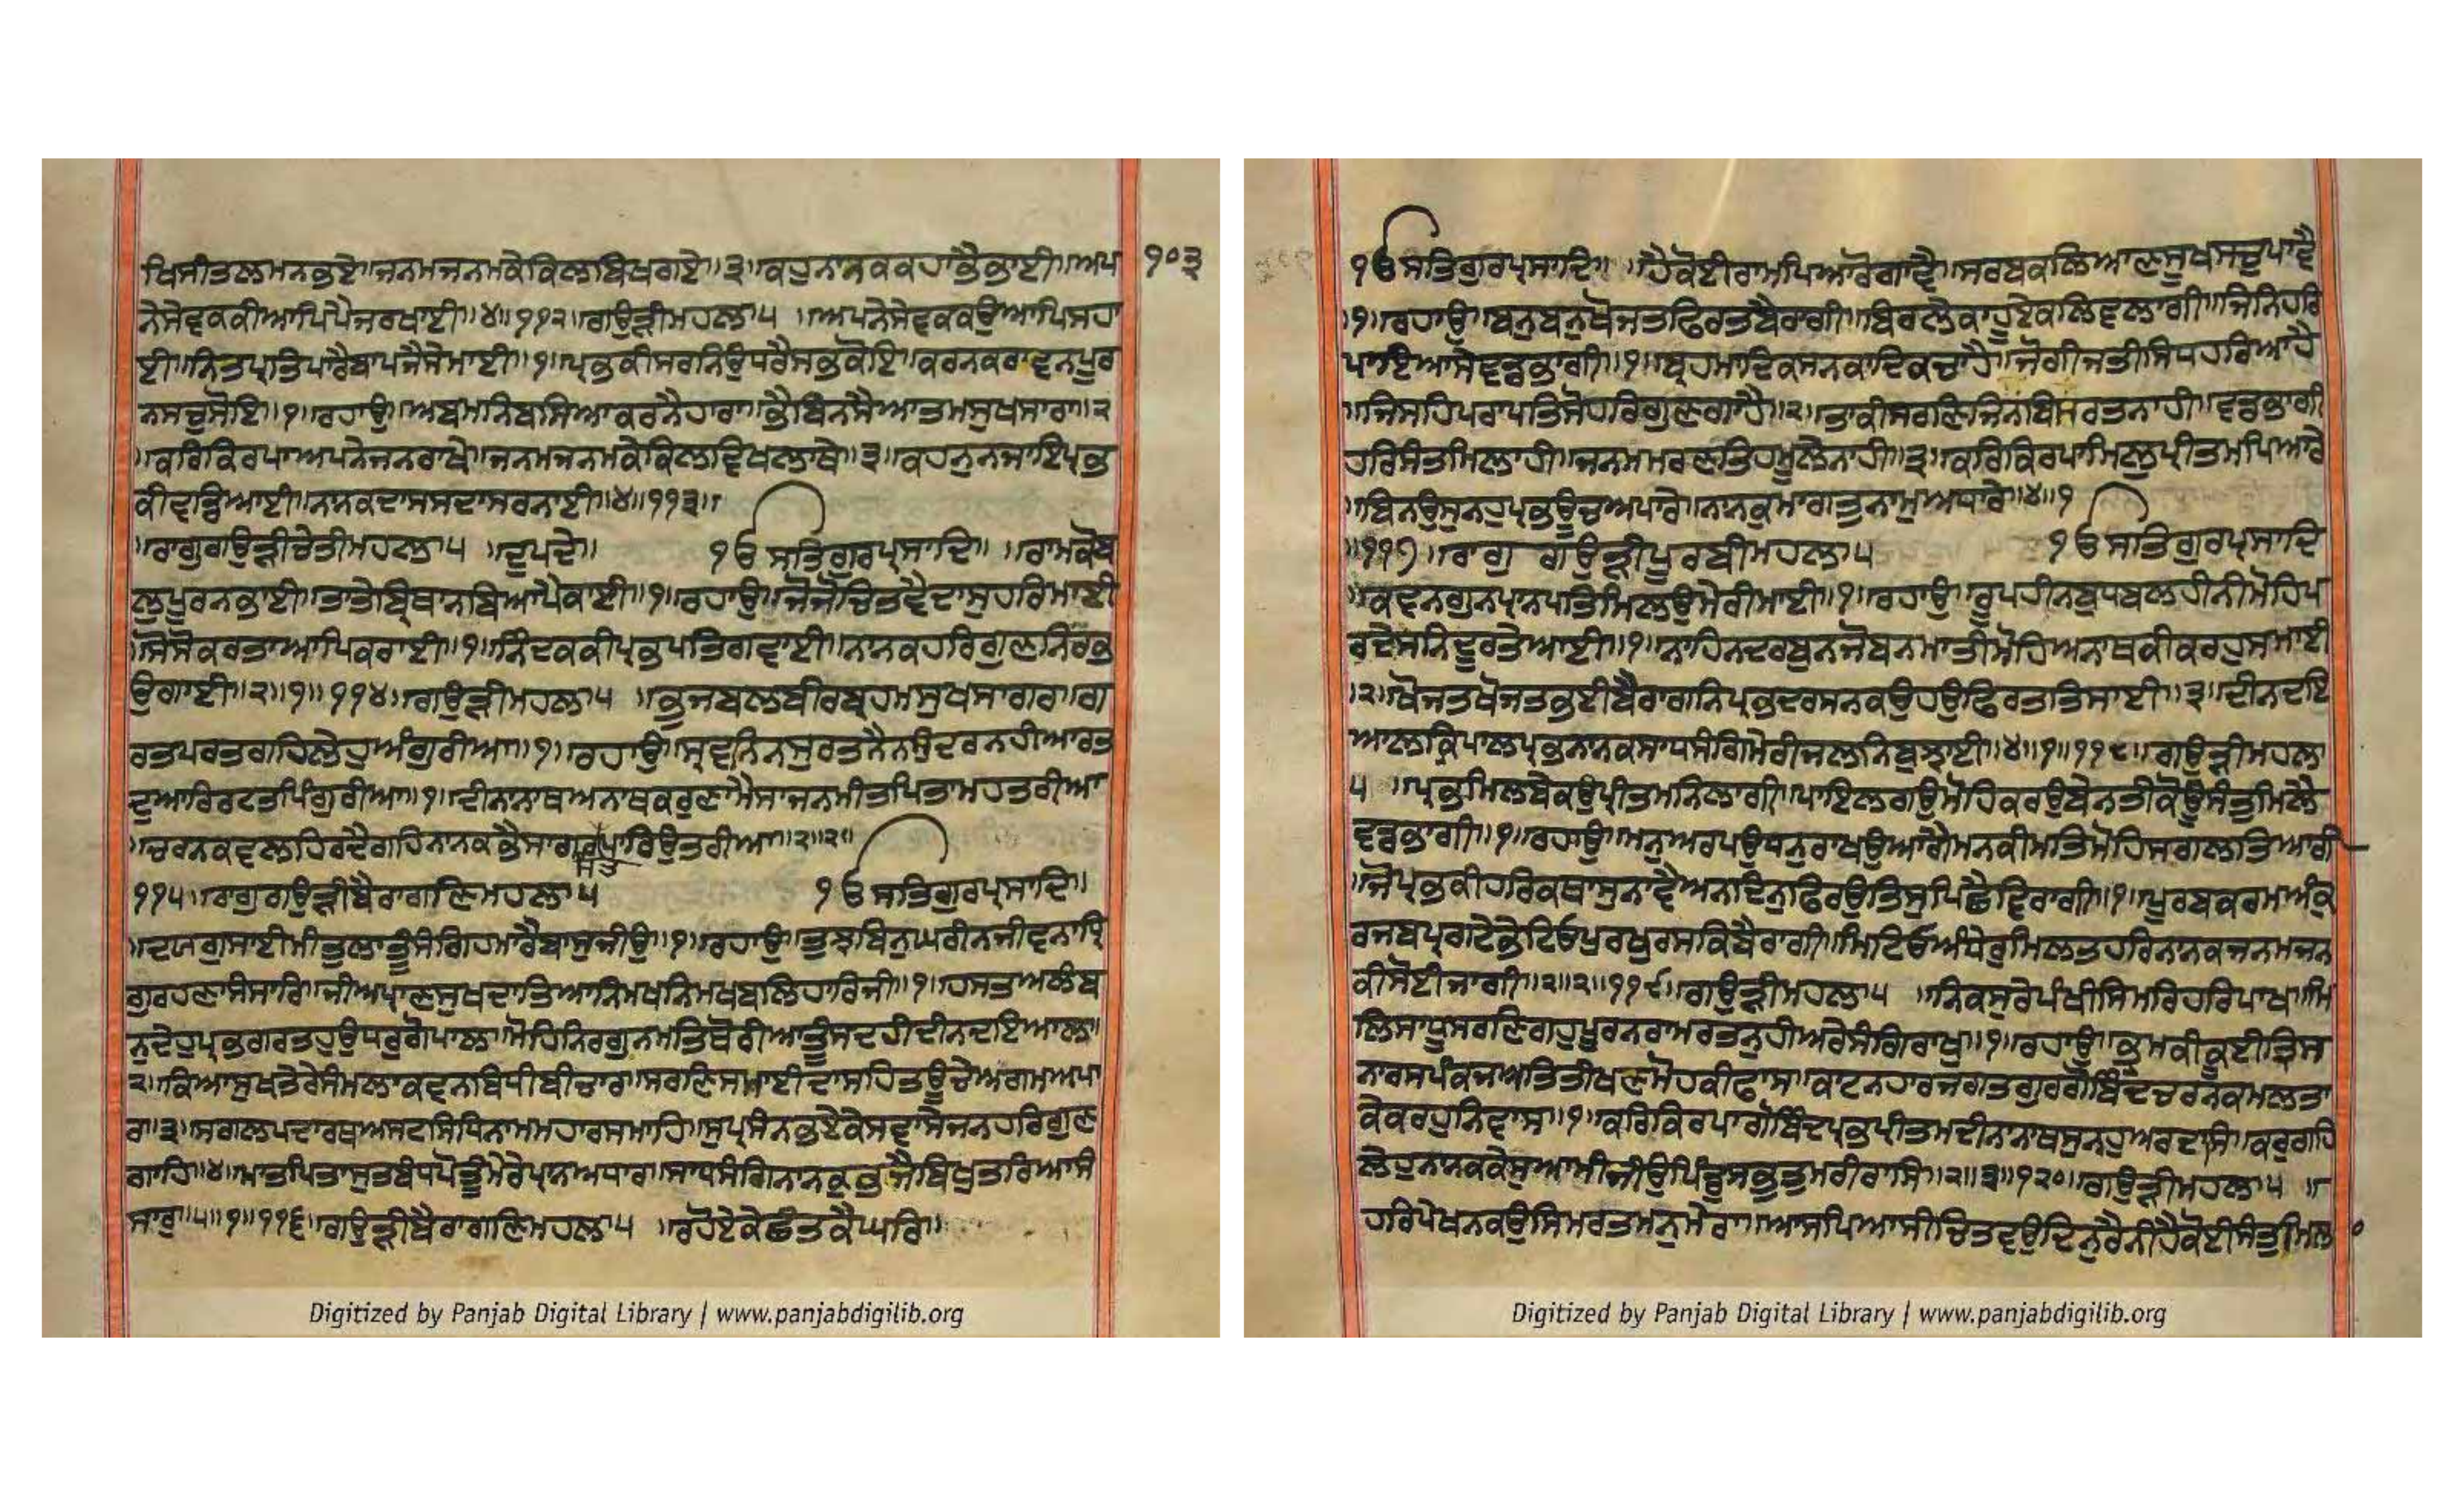 ਖਿਸੀਤਲਮਨਭਏ॥ਜਨਮਜਨਮਕੇਕਿਲਬਿਖਗਏ॥੩॥ਕਹੁਨਾਨਕਕਹਾਭੈਭਾਈ॥ਅਪ
੧੦੩
ਨੇਸੇਵਕਕੀਆਪਿਪੈਜਰਖਾਈ॥੪॥੧੧੨॥ਗਉੜੀਮਹਲਾ੫ ॥ਅਪਨੇਸੇਵਕਕਉਆਪਿਸਹਾ
ਈ॥ਨਿਤਪ੍ਰਤਿਪਾਰੈਬਾਪਜੈਸੇਮਾਈ॥੧॥ਪ੍ਰਭਕੀਸਰਨਿਉਬਰੈਸਭਕੋਇ॥ਕਰਨਕਰਾਵਨਪੂਰ
ਨਸਚੁਸੋਇ॥੧॥ਰਹਾਉ॥ਅਬਮਨਿਬਸਿਆਕਰਨੈਹਾਰਾ॥ਭੈਬਿਨਸੈਆਤਮਸੁਖਸਾਰਾ॥੨
॥ਕਰਿਕਿਰਪਾਅਪਨੇਜਨਰਾਖੇ॥ਜਨਮਜਨਮਕੇਕਿਲਵਿਖਲਾਥੇ॥੩॥ਕਹਨੁਨਜਾਇਪ੍ਰਭ
ਕੀਵਡਿਆਈ॥ਨਾਨਕਦਾਸਸਦਾਸਰਨਾਈ॥੪॥੧੧੩॥
॥ਰਾਗੁਗਉੜੀਚੇਤੀਮਹਲਾ੫ ॥ਦੁਪਦੇ॥ ੧ਓਸਤਿਗੁਰਪ੍ਰਸਾਦਿ॥ ॥ਰਾਮਕੋਬ
ਲੁਪੂਰਨਭਾਈ॥ਤਾਤੇਬ੍ਰਿਥਾਨਬਿਆਪੈਕਾਈ॥੧॥ਰਹਾਉ॥ਜੋਜੋਚਿਤਵੈਦਾਸੁਹਰਿਮਾਈ
॥ਸੋਸੋਕਰਤਾਆਪਿਕਰਾਈ॥੧॥ਨਿੰਦਕਕੀਪ੍ਰਭਪਤਿਗਵਾਈ॥ਨਾਨਕਹਰਿਗੁਣਨਿਰਭ
ਉਗਾਈ॥੨॥੧॥੧੧੪॥ਗਉੜੀਮਹਲਾ੫ ॥ਭੁਜਬਲਬੀਰਬ੍ਰਹਮਸੁਖਸਾਗਰ॥ਗ
ਰਤਪਰਤਗਹਿਲੇਹੁਅੰਗੁਰੀਆ॥੧॥ਰਹਾਉ॥ਸ੍ਰਵਨਿਨਸੁਰਤਨੈਨਸੁੰਦਰਨਹੀਆਰਤ
ਦੁਆਰਿਰਟਤਪਿੰਗੁਰੀਆ॥੧॥ਦੀਨਾਨਾਥਅਨਾਥਕਰੁਣਾਮੈਸਾਜਨਮੀਤਪਿਤਾਮਹਤਰੀਆ
॥ਚਰਨਕਵਲਹਿਰਦੈਗਹਿਨਾਨਕਭੈਸਾਗਰਪਾਰਿਉਤਰੀਆ॥੨॥੨॥
੧੧੫॥ਰਾਗੁਗਉੜੀਬੈਰਾਗਣਿਮਹਲਾ੫ ੧ਓਸਤਿਗੁਰਪ੍ਰਸਾਦਿ॥
॥ਦਯਗੁਸਾਈਮੀਤੁਲਾਤੂੰਸੰਗਿਹਮਾਰੈਬਾਸੁਜੀਉ॥੧॥ਰਹਾਉ॥ਤੁਝਬਿਨੁਘਰੀਨਜੀਵਨਾਧ੍ਰਿ
ਗੁਰਹਣਾਸੰਸਾਰਿ॥ਜੀਅਪ੍ਰਾਣਸੁਖਦਾਤਿਆਨਿਮਖਨਿਮਖਬਲਿਹਾਰਿਜੀ॥੧॥ਹਸਤਾਅਲੰਬ
ਨੁਦੇਹੁਪ੍ਰਭਗਰਤਹੁਉਧਰੁਗੋਪਾਲ॥ਮੋਹਿਨਿਰਗੁਨਮਤਿਥੋਰੀਆਤੂੰਸਦਹੀਦੀਨਦਇਆਲ॥
੨॥ਕਿਆਸੁਖਤੇਰੇਸੰਮਲਾਕਵਨਬਿਧੀਬੀਚਾਰ॥ਸਰਣਿਸਮਾਈਦਾਸਹਿਤਊਚੇਅਗਮਅਪਾ
ਰ॥੩॥ਸਗਲਪਦਾਰਥਅਸਟਸਿਧਿਨਾਮਮਹਾਰਸਮਾਹਿ॥ਸੁਪ੍ਰਸੰਨਭਏਕੇਸਵਾਸੇਜਨਹਰਿਗੁਣ
ਗਾਹਿ॥੪॥ਮਾਤਪਿਤਾਸੁਤਬੰਧਪੋਤੂੰਮੇਰੇਪ੍ਰਾਨਅਧਾਰ॥ਸਾਧਸੰਗਿਨਾਨਕੁਭਜੈਬਿਖੁਤਰਿਆਸੰ
ਸਾਰੁ॥੫॥੧॥੧੧੬॥ਗਉੜੀਬੈਰਾਗਣਿਮਹਲਾ੫ ॥ਰਹੋਏਕੇਛੰਤਕੈਘਰਿ॥
Digitized by Panjab Digital Library | www.panjabdigilib.org
੧ਓਸਤਿਗੁਰਪ੍ਰਸਾਦਿ॥ ॥ਹੈਕੋਈਰਾਮਪਿਆਰੋਗਾਵੈ॥ਸਰਬਕਲਿਆਣਸੂਖਸਚੁਪਾਵੈ
॥੧॥ਰਹਾਉ॥ਬਨੁਬਨੁਖੋਜਤਫਿਰਤਬੈਰਾਗੀ॥ਬਿਰਲੈਕਾਹੂਏਕਲਿਵਲਾਗੀ॥ਜਿਨਿਹਰਿ
ਪਾਇਆਸੇਵਡਭਾਗੀ॥੧॥ਬ੍ਰਹਮਾਦਿਕਸਨਕਾਦਿਕਚਾਹੈ॥ਜੋਗੀਜਤੀਸਿਧਹਰਿਆਹੈ
॥ਜਿਸਹਿਪਰਾਪਤਿਸੋਹਰਿਗੁਣਗਾਹੈ॥੨॥ਤਾਕੀਸਰਣਿਜਿਨਬਿਸਰਤਨਾਹੀ॥ਵਡਭਾਗੀ
ਹਰਿਸੰਤਮਿਲਾਹੀ॥ਜਨਮਮਰਣਤਿਹਮੂਲੇਨਾਹੀ॥੩॥ਕਰਿਕਿਰਪਾਮਿਲੁਪ੍ਰੀਤਮਪਿਆਰੇ
॥ਬਿਨਉਸੁਨਹੁਪ੍ਰਭਊਚਅਪਾਰੇ॥ਨਾਨਕੁਮਾਗਤੁਨਾਮੁਅਧਾਰੇ॥੪॥੧
॥੧੧੭॥ਰਾਗੁ ਗਉੜੀਪੂਰਬੀਮਹਲਾ੫ ੧ਓਸਤਿਗੁਰਪ੍ਰਸਾਦਿ
॥ਕਵਨਗੁਨਪ੍ਰਾਨਪਤਿਮਿਲਉਮੇਰੀਮਾਈ॥੧॥ਰਹਾਉ॥ਰੂਪਹੀਨਬੁਧਿਬਲਹੀਨੀਮੋਹਿਪ
ਰਦੇਸਨਿਦੂਰਤੇਆਈ॥੧॥ਨਾਹਿਨਦਰਬੁਨਜੋਬਨਮਾਤੀਮੋਹਿਅਨਾਥਕੀਕਰਹੁਸਮਾਈ
॥੨॥ਖੋਜਤਖੋਜਤਭਈਬੈਰਾਗਨਿਪ੍ਰਭਦਰਸਨਕਉਹਉਫਿਰਤਤਿਸਾਈ॥੩॥ਦੀਨਦਇ
ਆਲਕ੍ਰਿਪਾਲਪ੍ਰਭਨਾਨਕਸਾਧਸੰਗਿਮੇਰੀਜਲਨਿਬੁਝਾਈ॥੪॥੧॥੧੧੮॥ਗਉੜੀਮਹਲਾ
੫ ॥ਪ੍ਰਭਮਿਲਬੇਕਉਪ੍ਰੀਤਮਨਿਲਾਗੀ॥ਪਾਇਲਗਉਮੋਹਿਕਰਉਬੇਨਤੀਕੋਊਸੰਤੁਮਿਲੈ
ਵਡਭਾਗੀ॥੧॥ਰਹਾਉ॥ਮਨੁਅਰਪਉਧਨੁਰਾਖਉਆਗੈਮਨਕੀਮਤਿਮੋਹਿਸਗਲਤਿਆਗੀ
॥ਜੋਪ੍ਰਭਕੀਹਰਿਕਥਾਸੁਨਾਵੈਅਨਦਿਨੁਫਿਰਉਤਿਸੁਪਿਛੈਵਿਰਾਗੀ॥੧॥ਪੂਰਬਕਰਮਅੰਕੁ
ਰਜਬਪ੍ਰਗਟੇਭੇਟਿਓਪੁਰਖੁਰਸਕਿਬੈਰਾਗੀ॥ਮਿਟਿਓਅੰਧੇਰੁਮਿਲਤਹਰਿਨਾਨਕਜਨਮਜਨ
ਕੀਸੋਈਜਾਗੀ॥੨॥੨॥੧੧੯॥ਗਉੜੀਮਹਲਾ੫ ॥ਨਿਕਸੁਰੇਪੰਖੀਸਿਮਰਿਹਰਿਪਾਖ॥ਮਿ
ਲਿਸਾਧੂਸਰਣਿਗਹੁਪੂਰਨਰਾਮਰਤਨੁਹੀਅਰੇਸੰਗਿਰਾਖੁ॥੧॥ਰਹਾਉ॥ਭ੍ਰਮਕੀਕੂਈਤ੍ਰਿਸ
ਨਾਰਸਪੰਕਜਅਤਿਤੀਖਣਮੋਹਕੀਫਾਸ॥ਕਾਟਨਹਾਰਜਗਤਗੁਰਗੋਬਿੰਦਚਰਨਕਮਲਤਾ
ਕੇਕਰਹੁਨਿਵਾਸ॥੧॥ਕਰਿਕਿਰਪਾਗੋਬਿੰਦਪ੍ਰਭਪ੍ਰੀਤਮਦੀਨਾਨਾਥਸੁਨਹੁਅਰਦਾਸਿ॥ਕਰੁਗਹਿ
ਲੇਹੁਨਾਨਕਕੇਸੁਆਮੀਜੀਉਪਿੰਡੁਸਭੁਤੁਮਰੀਰਾਸਿ॥੨॥੩॥੧੨੦॥ਗਉੜੀਮਹਲਾ੫ ॥
ਹਰਿਪੇਖਨਕਉਸਿਮਰਤਮਨੁਮੇਰਾ॥ਆਸਪਿਆਸੀਚਿਤਵਉਦਿਨੁਰੈਨੀਹੈਕੋਈਸੰਤੁਮਿਲ
Digitized by Panjab Digital Library | www.panjabdigilib.org